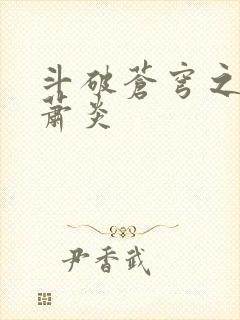 斗破苍穹之
萧炎
尹香武